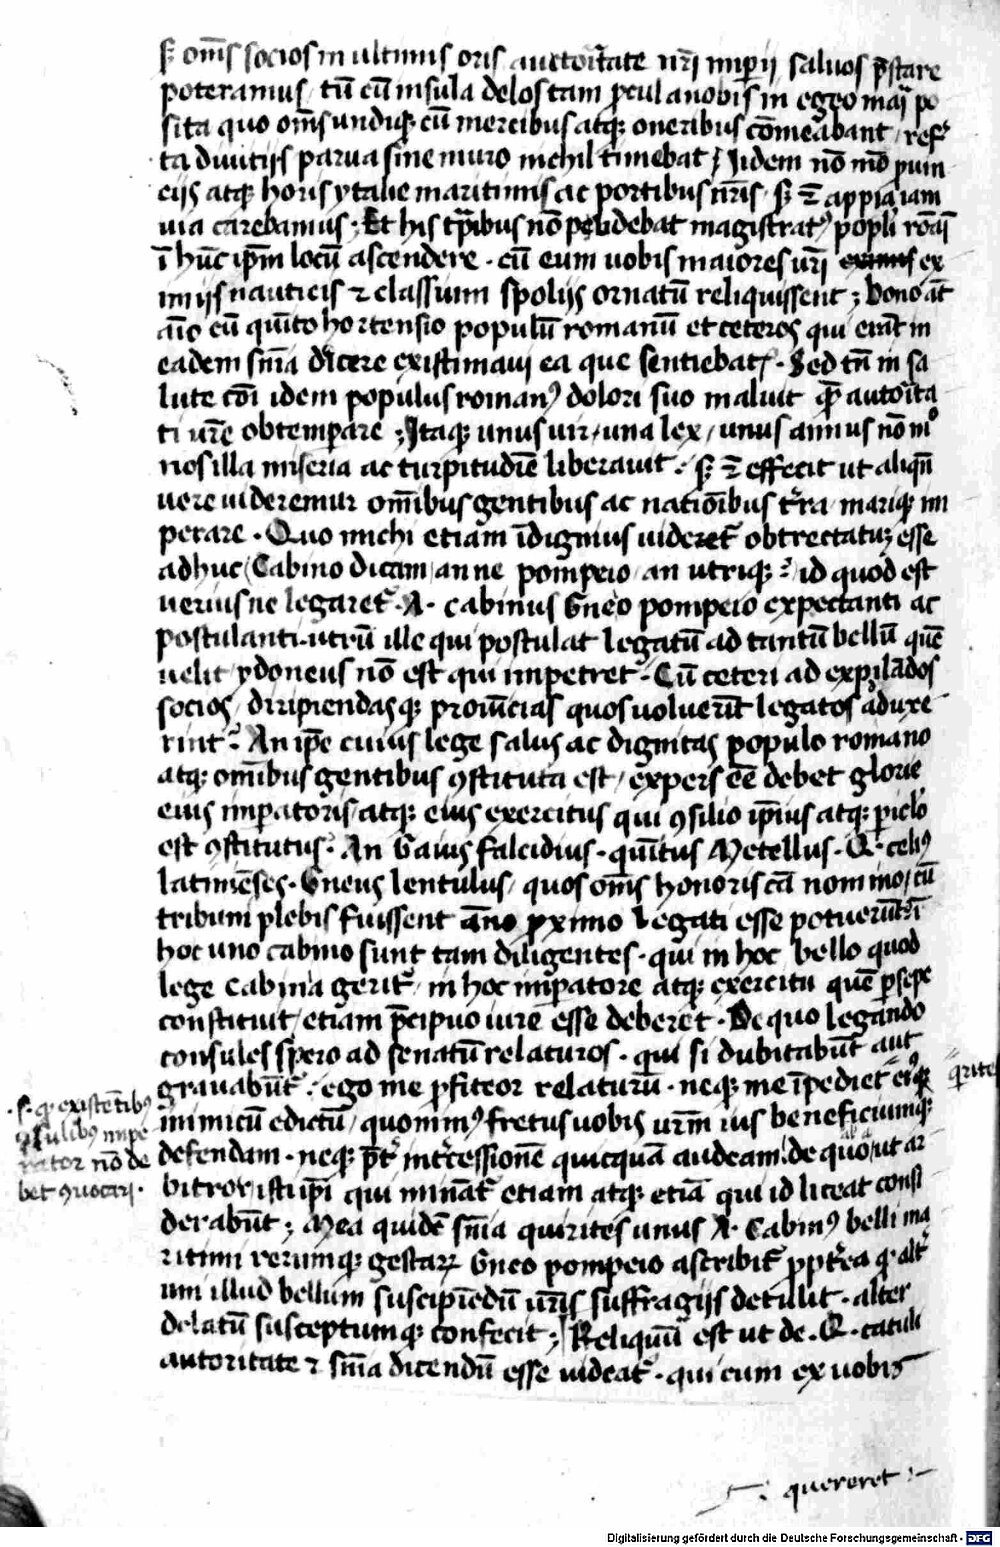 sꝫ om̄s socios in ultimis oris auctoritate nr̄i imperij saluos p̄stare
poteramus / tn̄ cū insula delos tam procul a nobis in egeo mari po
sita quo om̄s undiqꝫ cū mercibus atqꝫ oneribus cōmeabant / refer
ta diuitijs parua sine muro nichil timebat / Iidem nō mō prouin
cijs atqꝫ horis ytalie maritimis ac portibus nr̄is . sꝫ ⁊ appia iam
uia carebamus ; Et his tp̄ribus nō pendebat magistratꝰ popli ro̅ai
ī hūc ip̄m locū ascendere . cū eum uobis maiores ur̄i ex
imijs nauticis ⁊ classium spolijs ornatū reliquissent ; bono at̄
aīo cū quīto hortensio populū romanū et ceteros qui erāt in
eadem sn̄ia dicere existimaui ea que sentiebat . Sed tn̄ in sa
lute cōi idem populus romanꝰ dolori suo maluit qꝫ autorita
ti ur̄e obtemperare ; Itaqꝫ unus uir / una lex / unus annus nō mō
nos illa miseria ac turpitudīe liberauit . sꝫ ⁊ effecit ut aliqn̄
uere uideremur om̄ibus gentibus ac natiōibus tr̄ra mariqꝫ im
perare . Quo michi etiam īdignius uideret̄ obtrectatuꝫ esse
adhuc / Cabino dicam / an ne pompeio / an utriqꝫ : id quod est
uerius ne legaret̄ . A . cabinus Gneo pompeio expectanti ac
postulanti . utrū ille qui postulat legatū ad tantū bellū quē
uelit / ydoneus nō est qui impetret . Cū ceteri ad expilādos
socios / diripiendasqꝫ prouīcias quos uoluerūt legatos aduxe
rint : An ip̄e cuius lege salus ac dignitas populo romano
atqꝫ om̄ibus gentibus ꝯstituta est / expers eē debet glorie
eius imperatoris atqꝫ eius exercitus qui ꝯsilio ip̄ius atqꝫ piclo
est ꝯstitutus : An Gaius falcidius . quītus Metellus . Q . celiꝰ
latiniēses . Gneus lentulus / quos om̄s honoris cā nomino / cū
tribuni plebis fuissent anno proximo legati esse potuerūt : ī
hoc uno cabino sunt tam diligentes . qui in hoc bello quod
lege cabinia gerit̄ / in hoc imperatore atqꝫ exercitu quē per se ipe
constituit / etiam p̄cipuo iure esse deberet . De quo legando
consules spero ad senatū relaturos . qui si dubitabūt aut
grauabūt̄ : ego me profiteor relaturū . neqꝫ me īpediet eiꝰqꝫ
inimicū edictū / quominꝰ fretus uobis urm̄ ius beneficiumqꝫ
defendam . neqꝫ p̄t̄ intercessionē quicquā audeam . de quo / ut ar
bitror / isti ip̄i qui minat̄ etiam atqꝫ etiā qui id liceat consi
derabūt ; Mea quidē sn̄ia quirites unus A . Cabinꝰ belli ma
ritimi rerumqꝫ gestarꝝ Gneo pompeio ascribit̄ propt̄ea qꝫ alt̄
um illud bellum suscipiēdū ur̄is suffragijs detulit . alter
delatū susceptumqꝫ confecit ; Reliquū est ut de . Q . catuli
autoritate ⁊ sn̄ia dicendū esse uideat̄ . qui cum ex uobis
.s. qꝫ existētibꝰ
ꝯsulibꝰ impe
rator nō de
bet ꝯuocari .
qꝫrite
quereret :
Digitalisierung gefördert durch die Deutsche Forschungsgemeinschaft - DFG